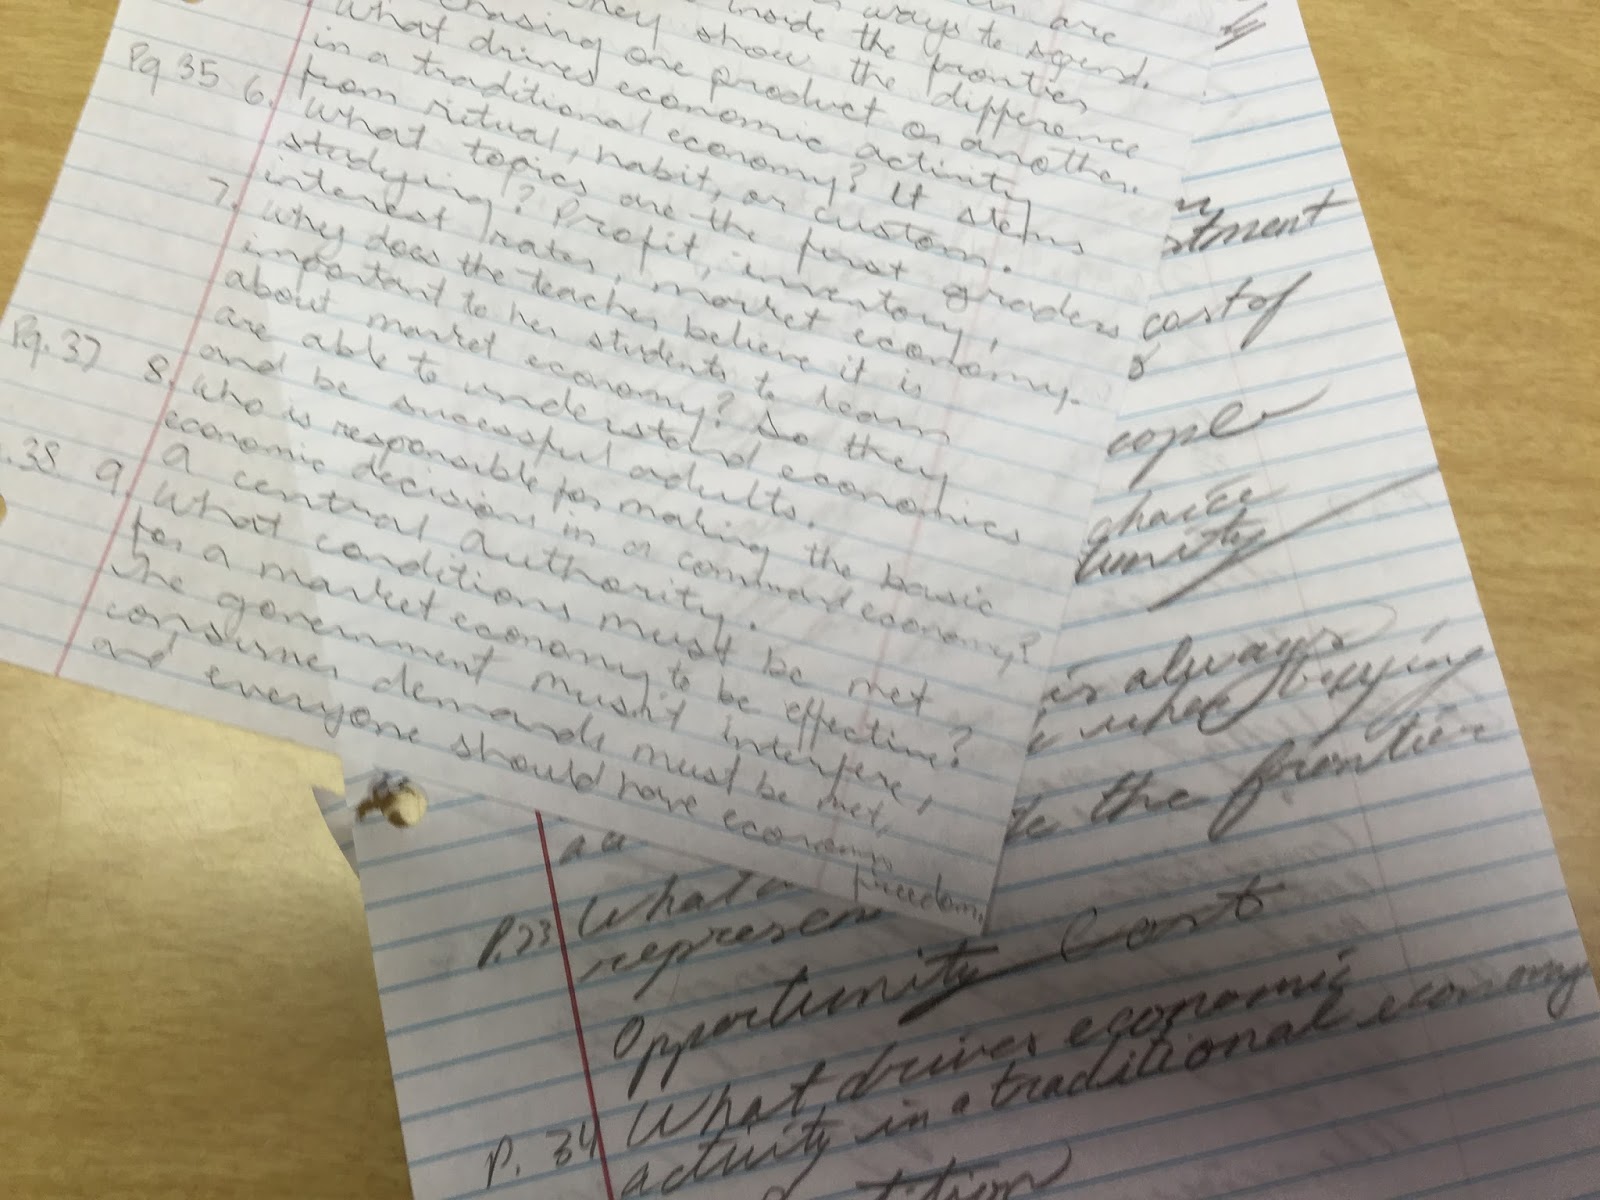 are
ways to spend.
inside the frontier
they show the difference
chasing one product or another.
What drives economic activity
in a traditional economy? It stems
from ritual, habit, or custom.
Pg 35 6. What topics are the first graders
studying? Profit, inventory,
interest rates, market economy.
7. Why does the teacher believe it is
important to her students to learn
about market economy? So they
are able to understand economics
and be successful adults.
Pg. 37 8. Who is responsible for making the basic
economic decisions in a command economy?
a central authority.
.38 9. What conditions must be met
for a market economy to be effective?
The government musn't interfere,
consumer demands must be met,
and everyone should have econom
freedom.
stment
cost of
choice
tunity
is always
when buying
the frontier
P.23 What
represen
Opportunity Cost
P. 34 What drives economic
activity in a traditional economy